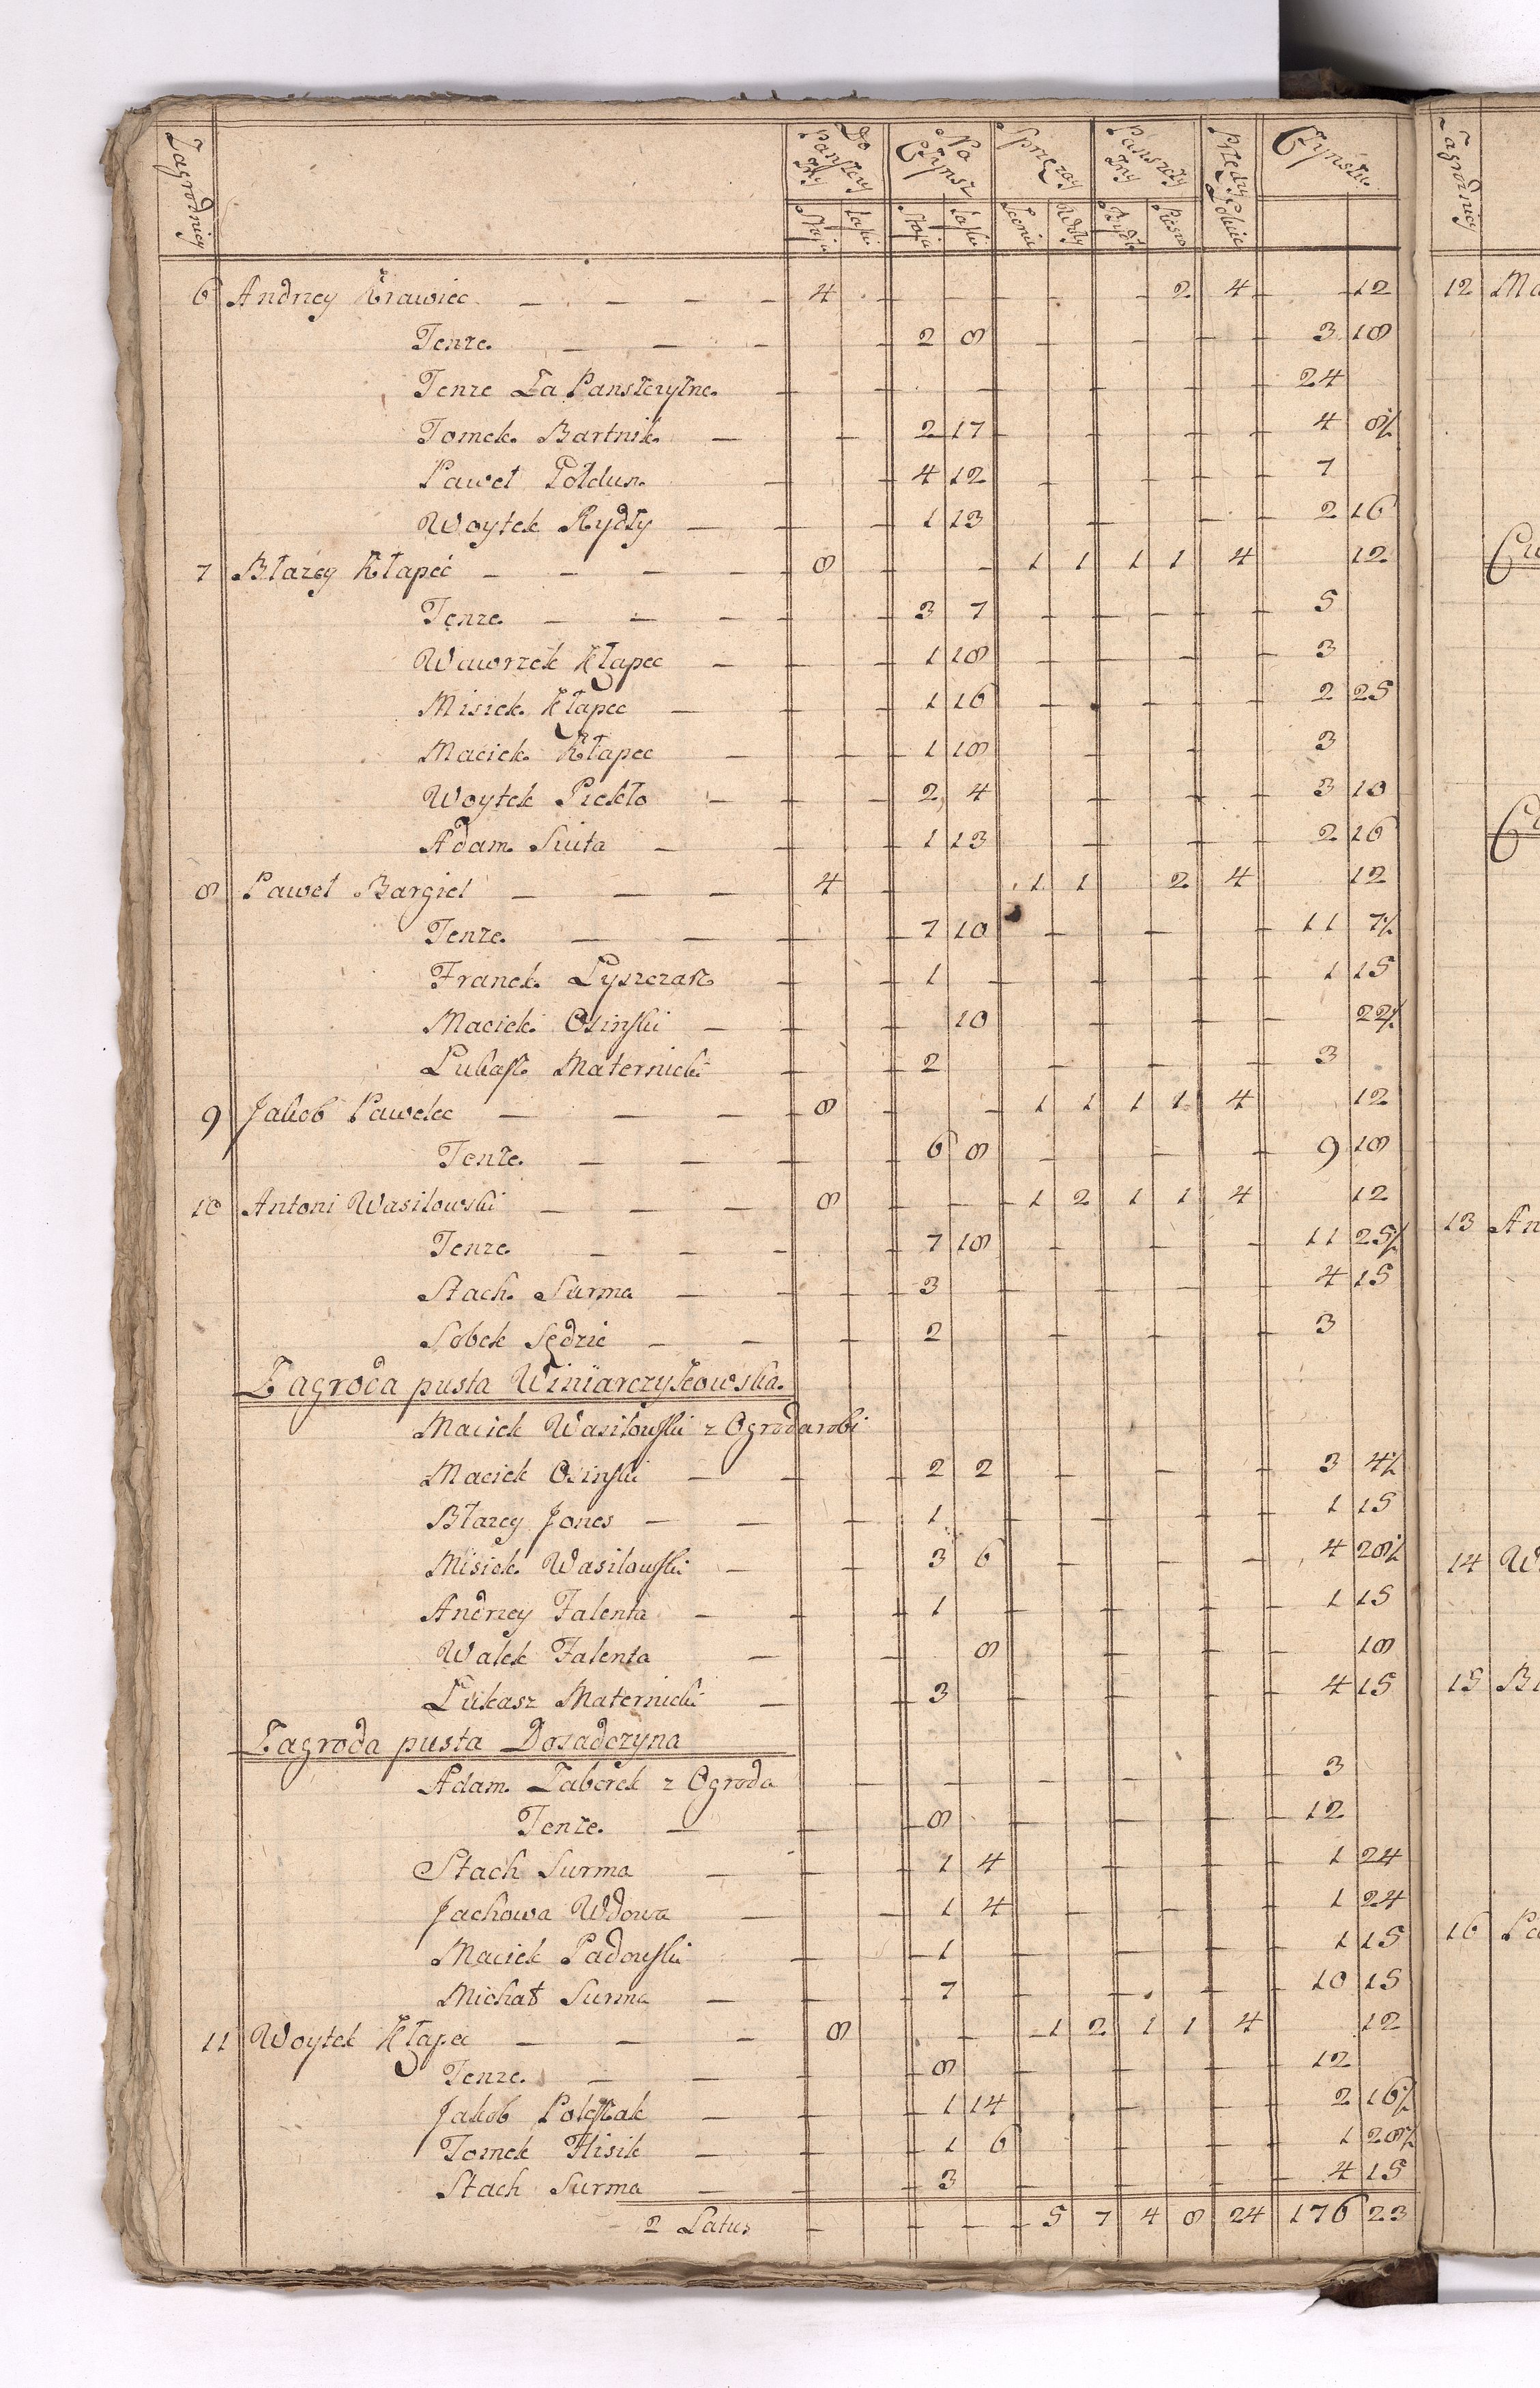 Zagrodnicy Do Panszczyzny Na Czynsz Sprzężay Panszczyzny Przędzy Łokcie Czynszu Zagrodnicy
Staja Laski Staja Laski Konie Woły Bydłe Pieszo
6 Andrzey Krawiec — — — — 4 2 4 12
Tenze — — — 2 8 3 18
Tenze Za Panszczyznę 24
Tomek Bartnik — 2 17 4 8½
Paweł Połdus 4 12 7
Woytek Rydzy — 1 13 2 16
7 Błazey Kłapeć — — — — 8 1 1 1 1 4 12
Tenze — — — 3 7 5
Wawrzek Kłapec — 1 18 3
Misiek Kłapec — 1 16 2 25
Maciek Kłapec — 1 18 3
Woytek Piekło — 2 4 3 10
Adam Siuta — 1 13 2 16
8 Paweł Bargieł — — — 4 1 1 2 4 12
Tenze — — 7 10 11 7½
Franek Łyszczarz 1 1 15
Maciek Osinski — 10 22½
Łukasz Maternicki 2 3
9 Jakob Pawelec — — — 8 1 1 1 1 4 12
Tenze — — 6 8 9 18
10 Antoni Wasilowski — — — 8 1 2 1 1 4 12
Tenze — — — 7 18 11 25½
Stach Surma — — 3 4 15
Sobek Sędzic — — 2 3
Zagroda pusta Winiarczykowska
Maciek Wasilowski z Ogroda robi
Maciek Osinski — 2 2 3 4½
Błazey Jones — — 1 1 15
Misiek Wasilowski — 3 6 4 28½
Andrzey Falenta — 1 1 15
Walek Falenta — 8 18
Łukasz Maternicki — 3 4 15
Zagroda pusta Dosadczyna
Adam Zaborek z Ogroda 3
Tenze — 8 12
Stach Surma — 1 4 1 24
Jachowa Wdowa — 1 4 1 24
Maciek Padowski 1 1 15
Michał Surma — 7 10 15
11 Woytek Kłapec — — — 8 1 2 1 1 4 12
Tenze — — 8 12
Jakob — 1 14 2 16½
Tomek Hisik — 1 6 1 28½
Stach Surma — 3 4 15
2 Latus 5 7 4 8 24 176 23
12 Ma
13 An
14 W
15 Bł
16 Pa